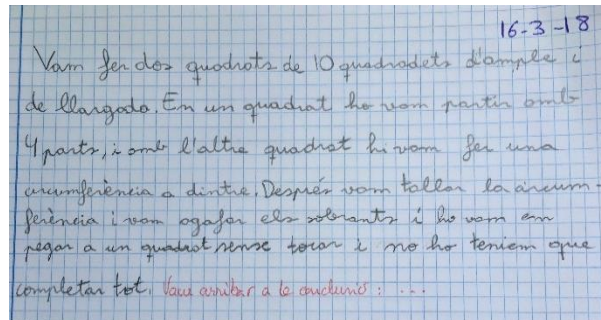 16-3-18
Vam fer dos quadrats de 10 quadradets d'ample i
de llargada. En un quadrat ho vam partir amb
4 parts, i amb l'altre quadrat hi vam fer una
circumferència a dintre. Després vam tallar la circum-
ferència i vam agafar els sobrants i ho vam em
pegar a un quadrat sense tocar i no ho teniem que
completar tot. Vau arribar a la conclusió: ...